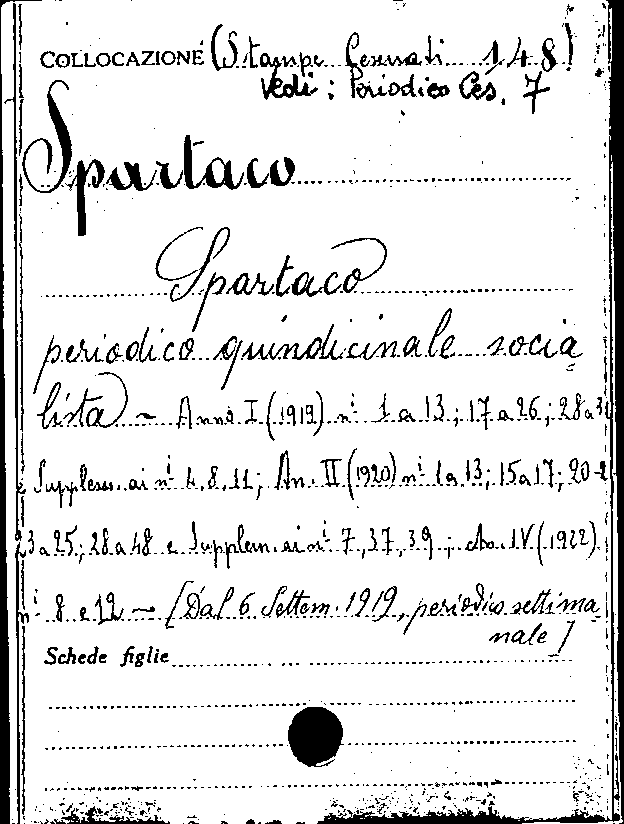 COLLOCAZIONE (Stampe Cesnati 148)
Vedi: Periodico Ces. 7
Spartaco
Spartaco
periodico quindicinale socia
lista) ~ Anno I (1919) nⁱ 1 a 13; 17 a 26; 28 a
e Supplem. ai nⁱ 4, 8, 11; An. II (1920) nⁱ 1 a 13; 15 a 17; 20-
23 a 25; 28 a 48 e Supplem. ai nⁱ 7, 37, 39; An. IV (1922)
nⁱ 8 e 12 ~ [Dal 6 Settem. 1919, periodico settima
nale]
Schede figlie